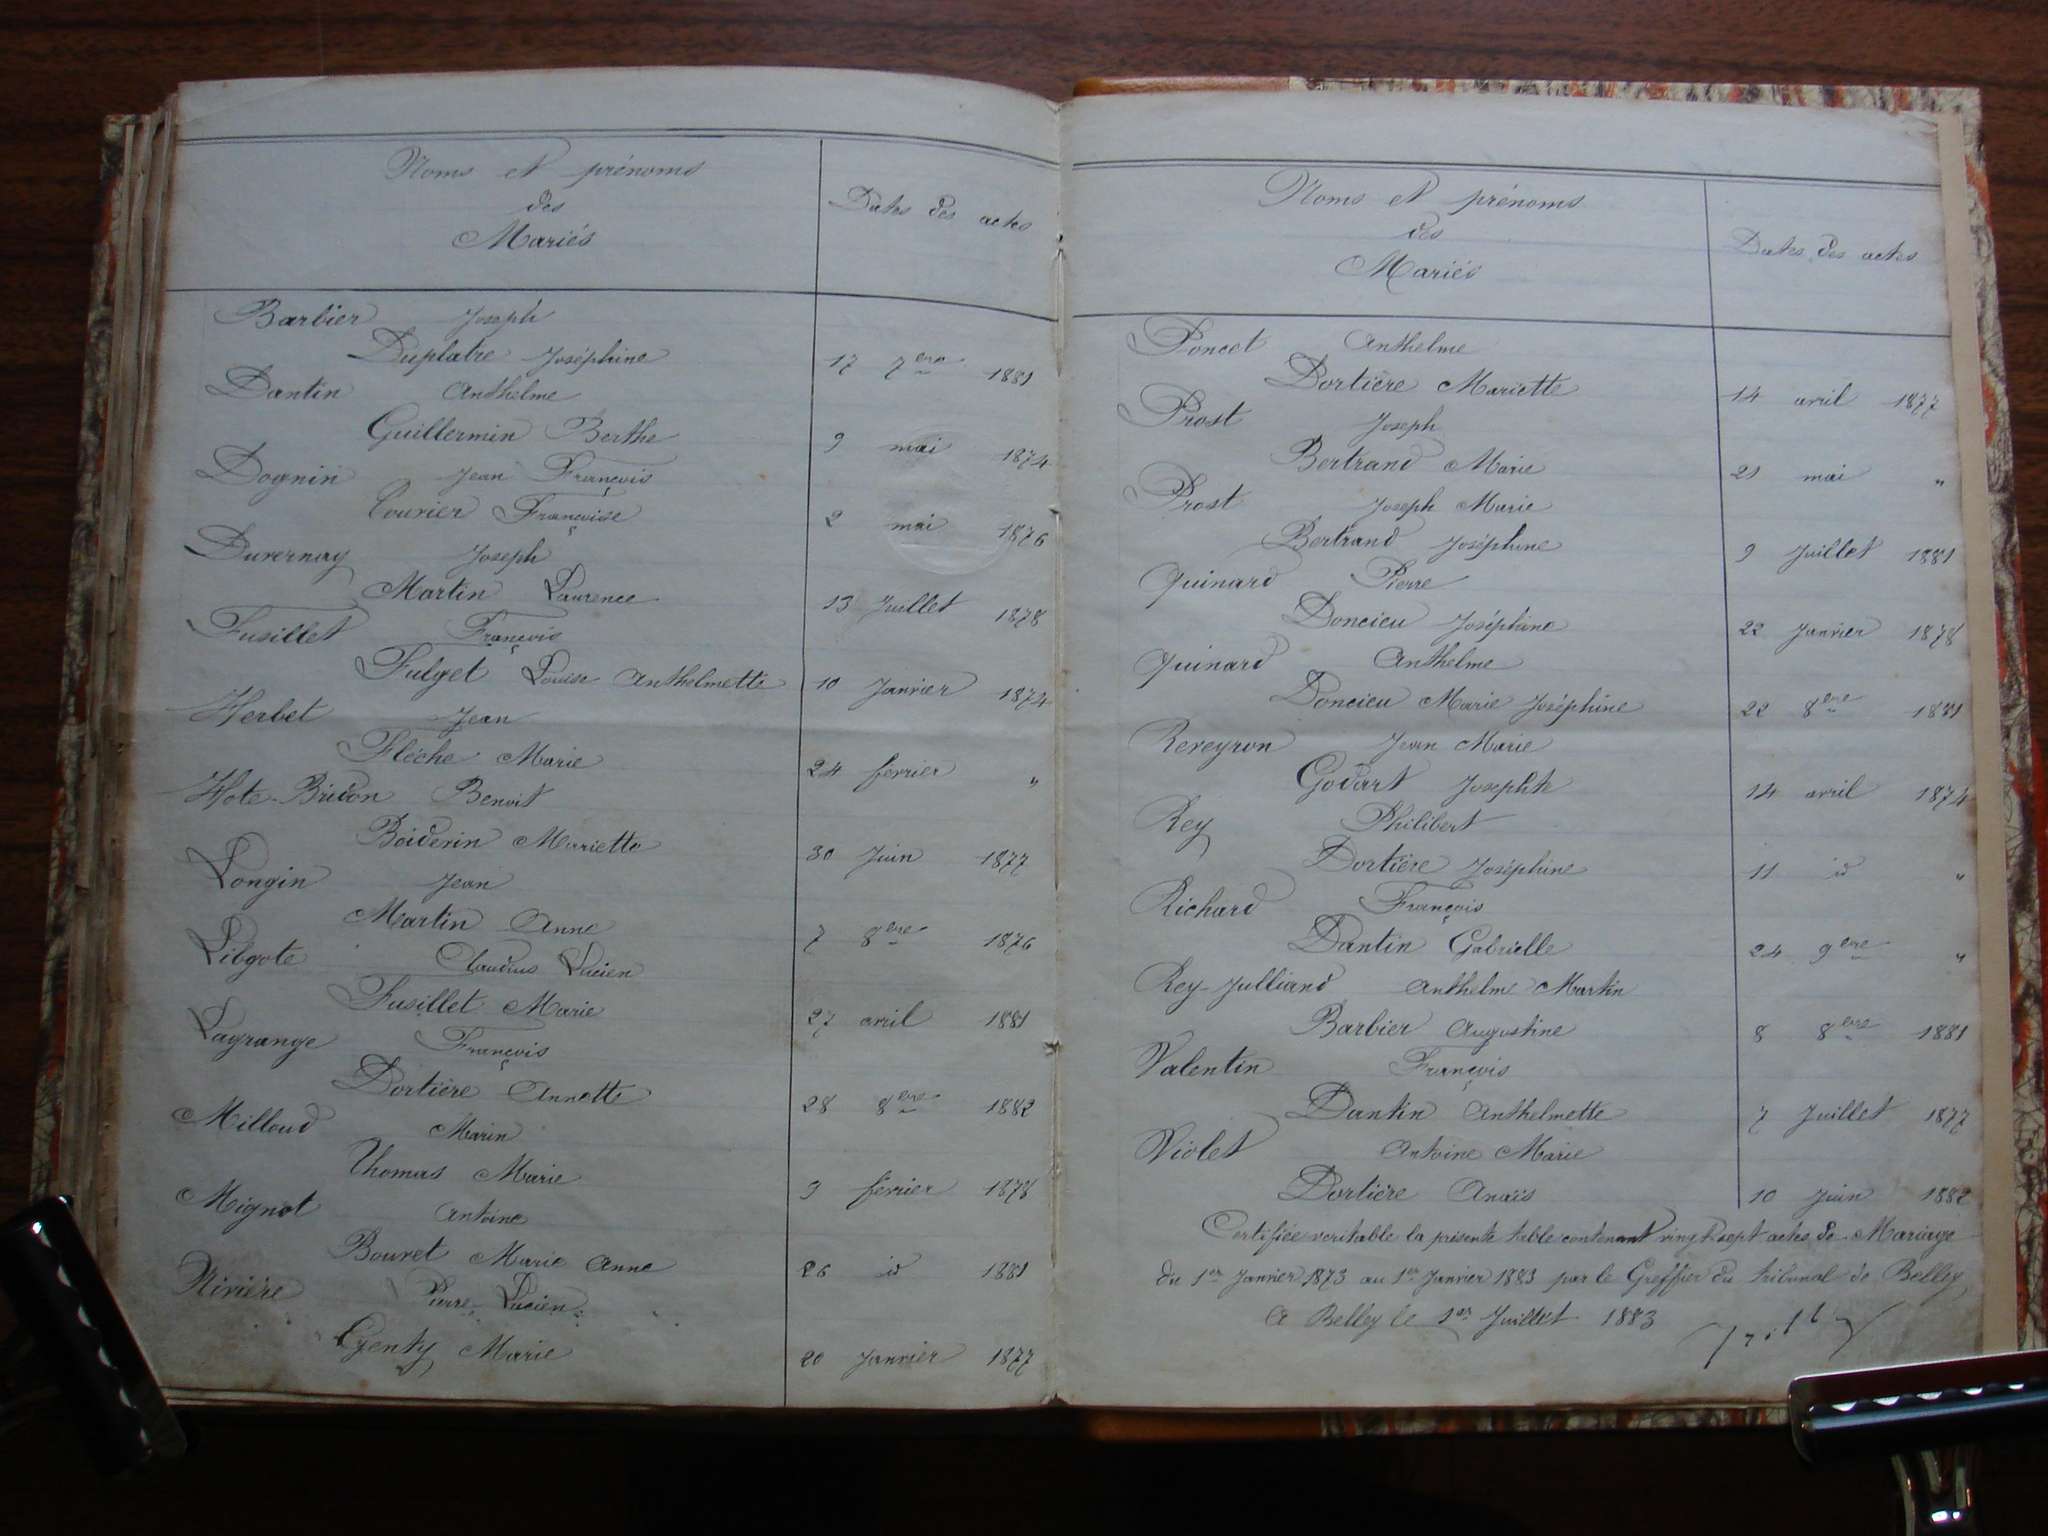 Noms et prénoms
des
Mariés
Dates des actes
Barbier Joseph
Duplatre Joséphine 17 7bre 1881
Dantin Anthelme
Guillermin Berthe 9 mai 1874
Dognin Jean François
Courier Françoise 2 mai 1876
Duvernay Joseph
Martin Laurence 13 Juillet 1878
Fusillet François
Fulget Louise Anthelmette 10 Janvier 1874
Herbet Jean
Flèche Marie 24 février "
Hote-Bridon Benoit
Boiderin Mariette 30 Juin 1877
Longin Jean
Martin Anne 7 8bre 1876
Libgote Claudius Lucien
Fusillet Marie 27 avril 1881
Lagrange François
Dortière Annette 28 8bre 1882
Milloud Marin
Thomas Marie 9 février 1878
Mignot Antoine
Bouret Marie Anne 26 id 1881
Nivière Pierre Lucien
Genty Marie 20 Janvier 1877
Noms et prénoms
des
Mariés
Dates des actes
Poncet Anthelme
Dortière Mariette 14 avril 1877
Prost Joseph
Bertrand Marie 21 mai "
Prost Joseph Marie
Bertrand Joséphine 9 Juillet 1881
Quinard Pierre
Doncieu Joséphine 22 Janvier 1878
Quinard Anthelme
Doncieu Marie Joséphine 22 8bre 1881
Rereyron Jean Marie
Godart Josephte 14 avril 1874
Rey Philibert
Dortière Joséphine 11 id "
Richard François
Dantin Gabrielle 24 9bre "
Rey-Julliand Anthelme Martin
Barbier Augustine 8 8bre 1881
Valentin François
Dantin Anthelmette 7 Juillet 1877
Violet Antoine Marie
Dortière Anaïs 10 Juin 1882
Certifiée veritable la présente table contenant vingt sept actes de Mariage
du 1er Janvier 1873 au 1er Janvier 1883 par le Greffier du tribunal de Belley
A Belley le 1er Juillet 1883